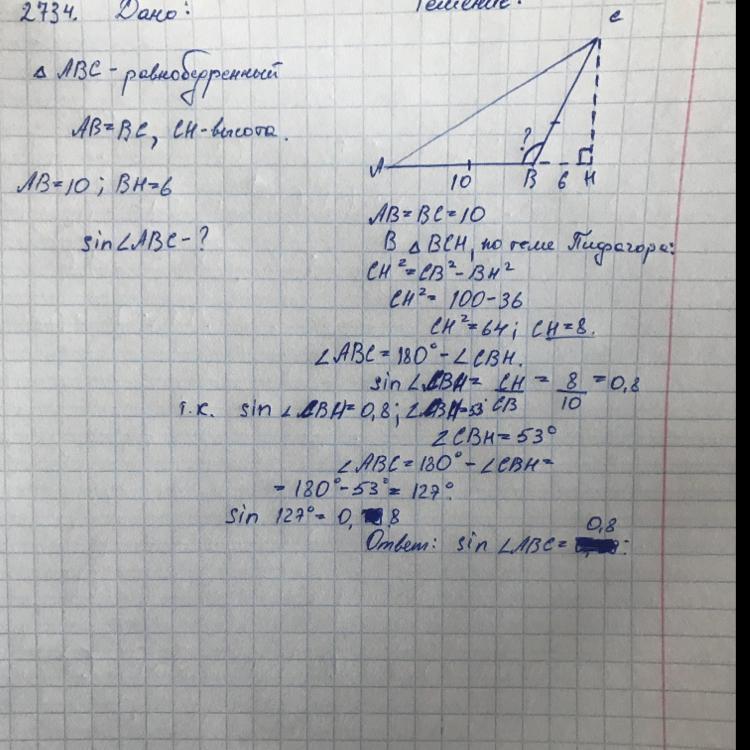 2734. Дано:
Решение:
△ ABC - равнобедренный
AB=BC, CH-высота.
AB=10; BH=6
sin∠ABC-?
C
?
A
10
B
6
H
AB=BC=10
В △ BCH, по теме Пифагора:
CH²=CB²-BH²
CH²= 100-36
CH²=64; CH=8.
∠ABC=180°-∠CBH.
sin ∠CBH= CH/CB = 8/10 =0,8
т.к. sin ∠CBH=0,8; ∠CBH=53°
∠CBH=53°
∠ABC=180°-∠CBH=
=180°-53°=127°.
sin 127°=0,8
Ответ: sin ∠ABC= 0,8